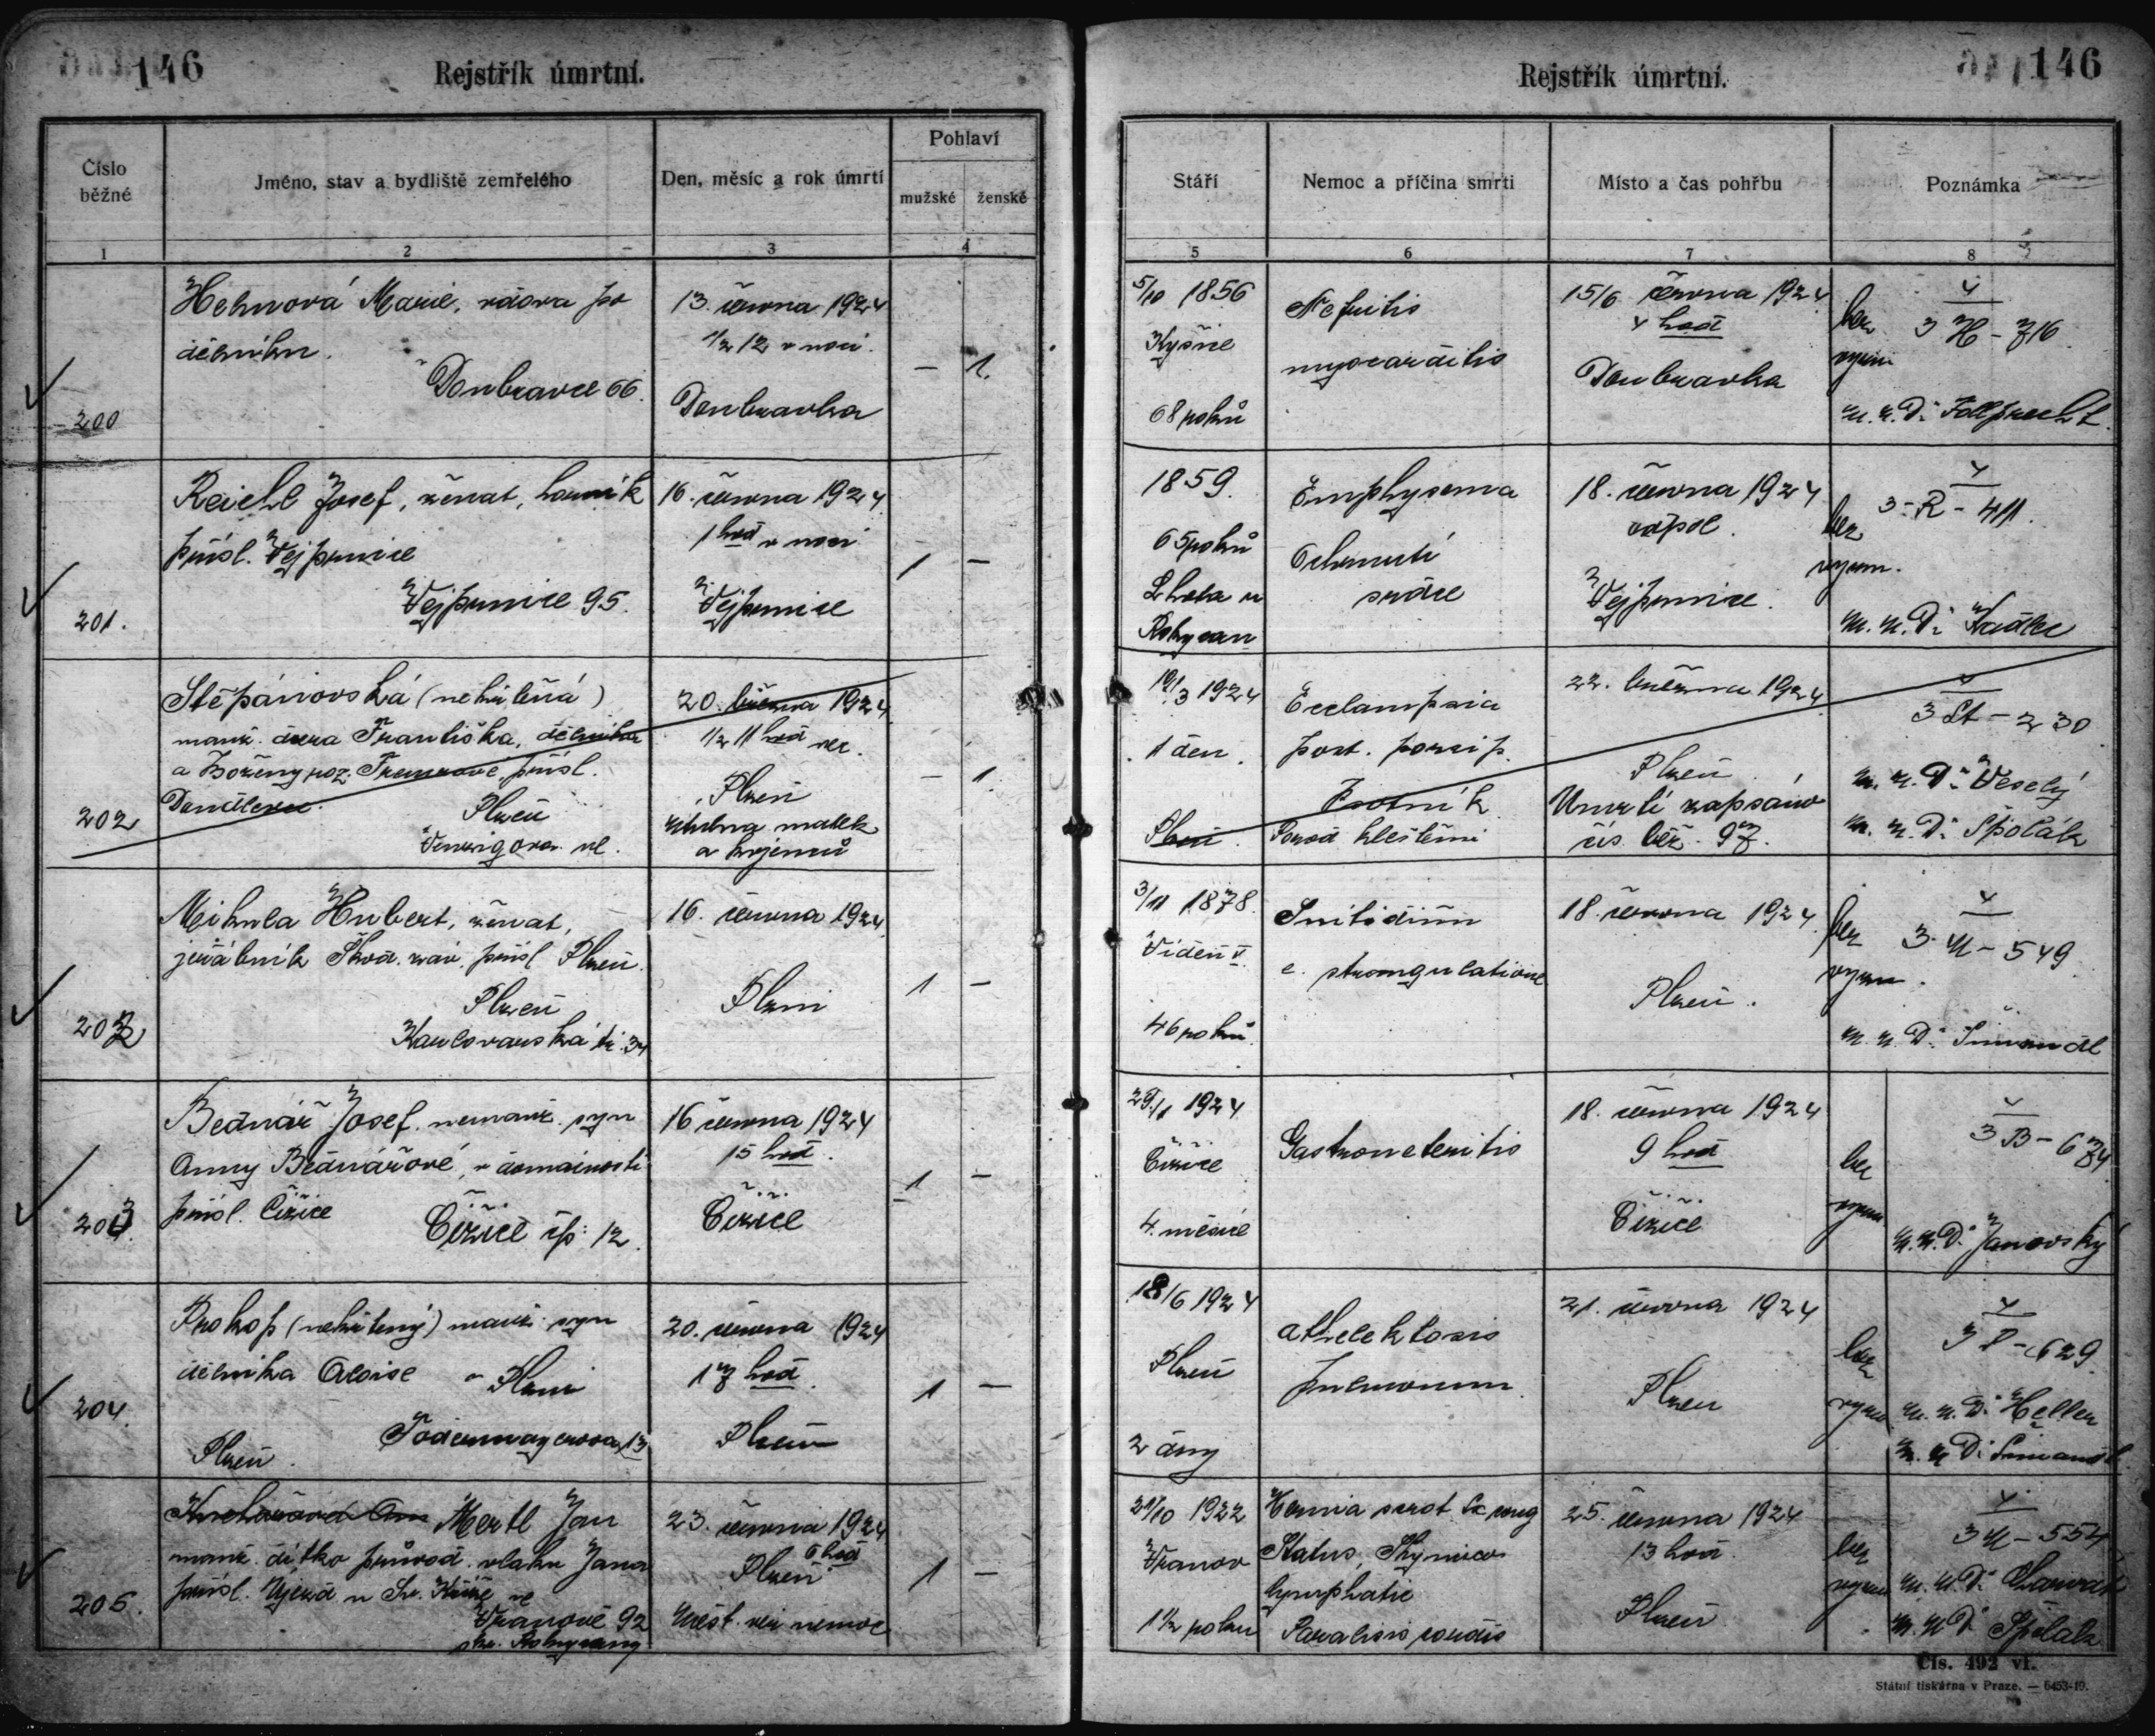 146
Rejstřík úmrtní.
Číslo běžné
Jméno, stav a bydliště zemřelého
Den, měsíc a rok úmrtí
Pohlaví
mužské
ženské
1
2
3
4
200
Marie, vdova po
dělníku.
Doubravce 66.
13. června 1924
1/2 12 v noci.
Doubravka
— 1.
201.
Reichl Josef, ženat, horník
přísl. Vejprnice
Vejprnice 95.
16. června 1924
1 hod v noci
Vejprnice
1 —
202
Štěpánovská (nekřtěná)
manž. dcera Františka, dělníka
a Boženy roz. přísl.
Plzeň
ul.
20. března 1924
1/2 11 hod več.
Plzeň
útulna matek
a kojenců
— 1.
202
Mikula Hubert, ženat,
jeřábník Škod. záv. přísl. Plzeň.
Plzeň
Karlovarská tř. 34
16. června 1924
Plzni
1 —
203.
Bednář Josef. nemanž. syn
Anny Bednářové, v domácnosti
přísl. Čižice
Čižice čp: 12.
16 června 1924
15 hod.
Čižice
1 —
204.
Prokop (nekřtěný) manž. syn
dělníka Aloise v Plzni
13
Plzeň.
20. června 1924
17 hod.
Plzeň
1 —
205.
Mertl Jan
manž. dítko průvod. vlaku Jana
přísl. Újezd u Sv. Kříže
ve
Vranově 92
okr. Rokycany
23. června 1924
6 hod
Plzeň
měst. nemoc
1 —
146
Rejstřík úmrtní.
Stáří
Nemoc a příčina smrti
Místo a čas pohřbu
Poznámka
5
6
7
8
5/10 1856
Kyšice
68 roků
Nefritis
myocarditis
15/6 června 1924
4 hod
Doubravka
bez
vyzn.
3 H - 716
m. u. Dr
1859.
65 roků
Lhota u
Rokycan
Emphysema
Ochrnutí
srdce
18. června 1924
odpol.
Vejprnice.
bez
vyzn.
3 - R - 411.
m. u. Dr
19/3 1924
1 den.
Plzeň.
Ecclampsia
post.
Psotník
Porod kleštěmi
22. března 1924
Plzeň
Úmrtí zapsáno
čís. běž. 97.
3 St - 230
m. u. Dr Veselý
m. u. Dr Špolák
3/11 1878.
Vídeň
46 roků.
c. strangulatione
18. června 1924.
Plzeň.
bez
vyzn.
3. M - 549
m. u. Dr
29/1 1924
Čižice
4. měsíce
Gastroneteritis
18. června 1924
9 hod
Čižice
bez
vyzn
3 B - 674
m. u. Dr. Janovský
18/6 1924
Plzeň
2 dny
athelektasis
pulmonum.
21. června 1924
Plzeň
bez
vyzn
3 P - 629
m. u. Dr Heller
m. u. Dr
21/10 1922
Vranov
1 1/2 roku
Hernia scrot.
Status, Thymico
lymphatic
Paralisis cordis
25. června 1924
13 hod.
Plzeň
bez
vyzn
3 M - 554
m. u. Dr
m. u. Dr Špolák
Čís. 492 vf.
Státní tiskárna v Praze. — 6453-19.